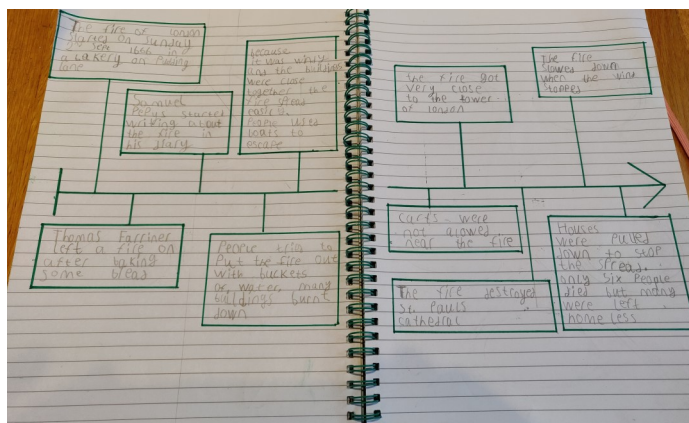 The fire of london
started on sunday
2nd Sept 1666 in a
a bakery on Pudding
lane
Samuel
Pepys started
writing about
the fire in
his diary
because
it was windy
and the buildings
were close
together the
fire spread
easily.
People used
boats to
escape
Thomas Farriner
left a fire on
after baking
some bread
People tried to
Put the fire out
with buckets
of water, many
buildings burnt
down
the fire got
very close
to the tower
of london
The fire
slowed down
when the wind
stopped
Carts were
not alowed
near the fire
The fire destroyed
St. Pauls
cathedral
Houses
were pulled
down to stop
the spread.
only six people
died but many
were left
homeless